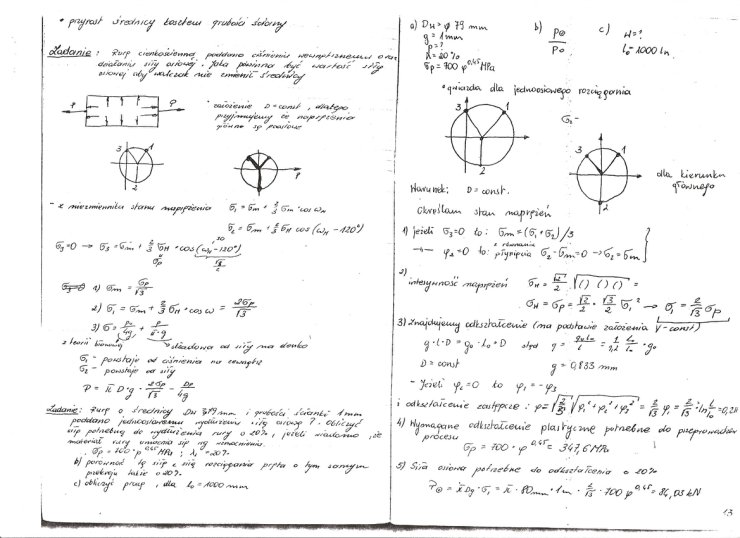 • przyrost średnicy kosztem grubości ściany
Zadanie: Rurę cienkościenną poddano ciśnieniu wewnętrznemu oraz
działaniu siły osiowej. Jaka powinna być wartość siły
osiowej aby walczak nie zmienił średnicy
P P
• założenie D = const, dlatego
przyjmujemy że naprężenia
główne są
3 1
2
P
- z niezmiennika stanu naprężenia σ₁ = σm + 2/3 σH · cos ωH
σ₂ = σm + 2/3 σH cos (ωH - 120°)
σ₃ = 0 → σ₃ = σm + 2/3 σH · cos (ωH - 120°)
1) σm = σp/√3
2) σ₁ = σm + 2/3 σH · cos ω = 2σp/√3
3)
z teorii składowa od siły na denko
σ₁ - powstaje od ciśnienia na zewnątrz
σ₂ - powstaje od siły
P = π D · g · 2σp/√3 - Dp/4g
Zadanie: Rurę o średnicy DH 79 mm i grubości ścianki 1 mm
poddano jednoosiowemu siłą osiową? Obliczyć
siłę potrzebną do wydłużenia rury o 20%, jeżeli wiadomo, że
materiał rury umacnia się wg
σp = 700 · φ^0,45 MPa; λ₁ = 20%
b) porównać tę siłę z siłą rozciągania pręta o tym samym
przekroju także o 20%
c) obliczyć pracę, dla l₀ = 1000 mm
a) DH = φ 79 mm
g = 1 mm
p = ?
λ = 20%
σp = 700 φ^0,45 MPa
b) P⊙ / P₀
c) W = ?
l₀ = 1000 m.
• gwiazda dla jednoosiowego rozciągania
3 1
2
σ₂ -
3 1
2
dla kierunku
głównego
Warunek: D = const.
Określam stan naprężeń
1) jeżeli σ₃ = 0 to: σm = (σ₁ + σ₂)/3
-"- φ₂ = 0 to: z równania płynięcia σ₂ - σm = 0 → σ₂ = σm
2) intensywność naprężeń σH = √2/2 √( ) ( ) ( )² =
σH = σp = √2/2 · √3/2 σ₁² → σ₁ = 2/√3 σp
3) Znajdujemy odkształcenie (na podstawie założenia V - const)
g · l · D = g₀ · l₀ · D stąd g = g₀l₀/l = 1/1,2 l₀/l₀ · g₀
D = const g = 0,833 mm
- Jeżeli φ₂ = 0 to φ₁ = - φ₃
i odkształcenie zastępcze: φ = √2/3 √φ₁² + φ₂² + φ₃² = 2/√3 φ₁ = 2/√3 · ln l/l₀ = 0,21
4) Wymagane odkształcenie plastyczne potrzebne do przeprowadzenia
procesu
σp = 700 · φ^0,45 = 347,6 MPa
5) Siła osiowa potrzebna do odkształcenia o 20%
P⊙ = π Dg · σ₁ = π · 80mm · 1m · 2/√3 · 700 φ^0,45 = 84,03 kN
13